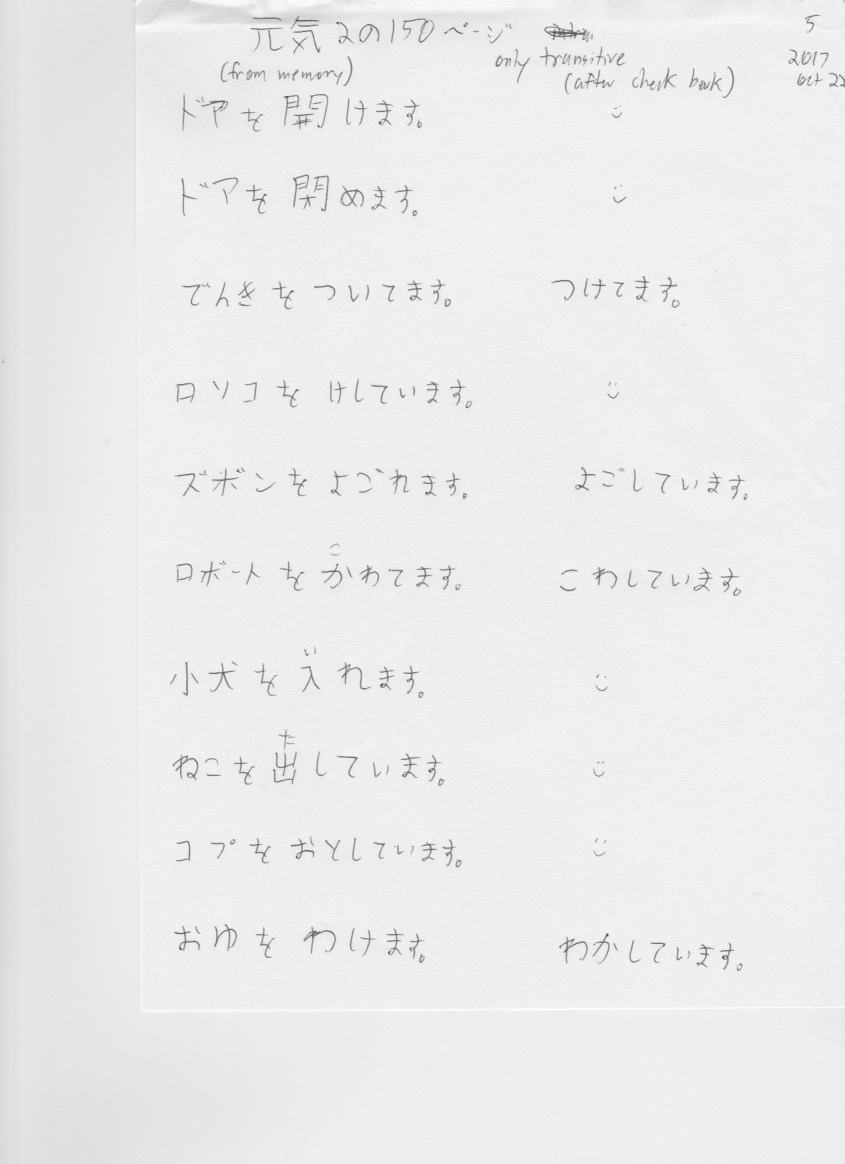 元気2の150ページ
5
(from memory)
only transitive
(after check book)
2017
Oct 22
ドアを開けます。
ドアを閉めます。
でんきをついてます。 つけてます。
ロソコをけしています。
ズボンをよごれます。 よごしています。
こ
ロボートをかわてます。 こわしています。
い
小犬を入れます。
た
ねこを出しています。
コプをおとしています。
おゆをわけます。 わかしています。